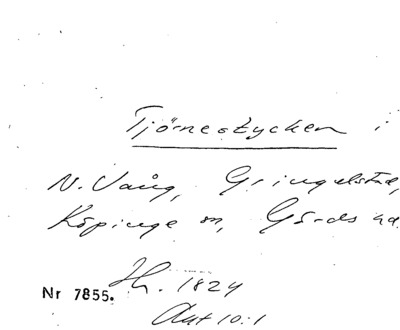 Tjörnestycken i
N. Vång, Gringelstad,
Köpinge sn, Gärds hd.
Jh. 1824
Nr 7855.
Akt 10:1